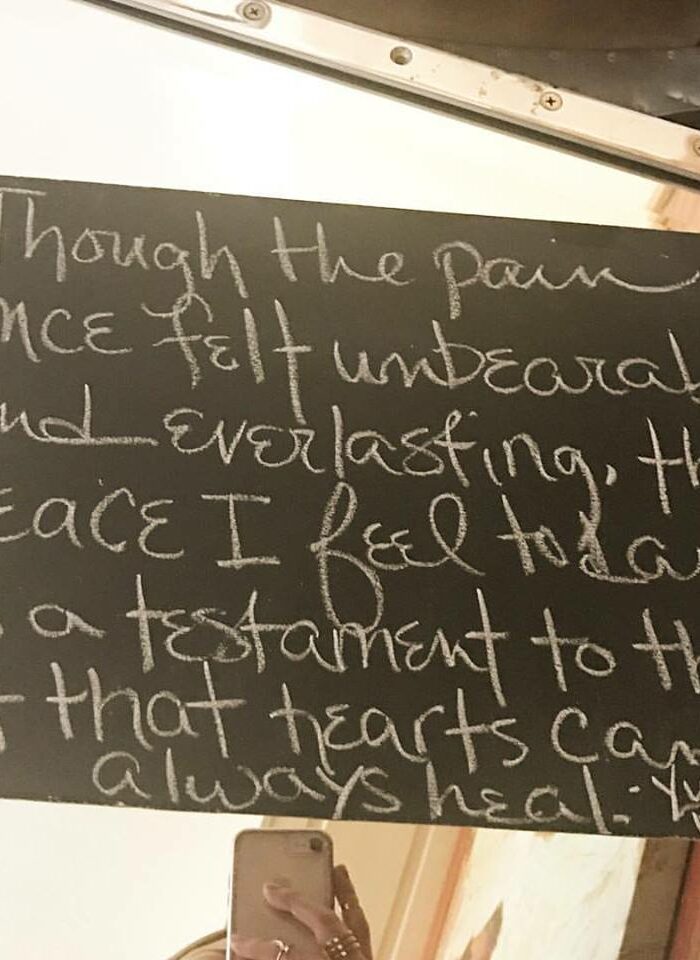 Though the pain
nce felt unbearab
nd everlasting, th
eace I feel toda
a testament to th
t that hearts can
always heal.